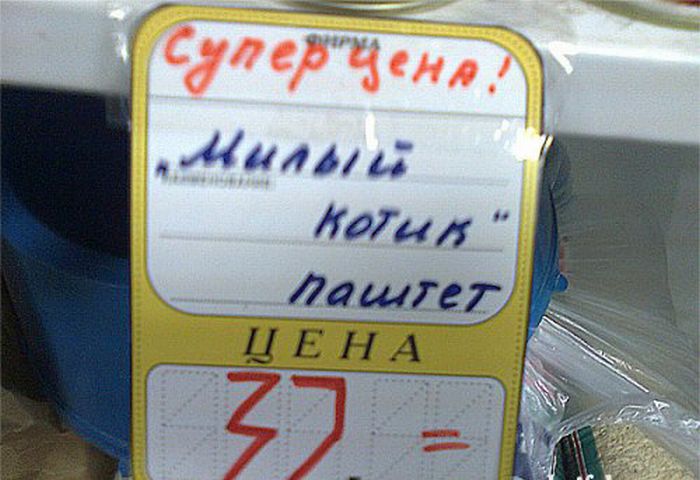 ФИРМА
Супер цена!
„Милый
НАИМЕНОВАНИЕ
котик“
паштет
ЦЕНА
37 =